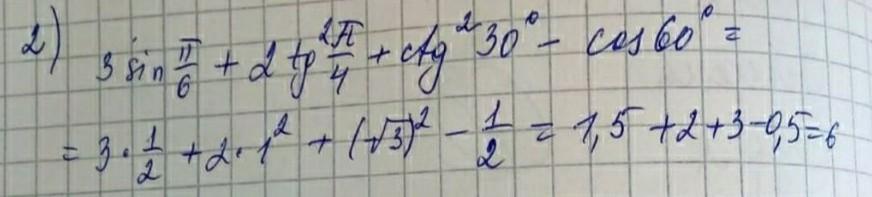 2) 3 sin π/6 + 2 tg² π/4 + ctg² 30° - cos 60° =
= 3 · 1/2 + 2 · 1² + (√3)² - 1/2 = 1,5 + 2 + 3 - 0,5 = 6